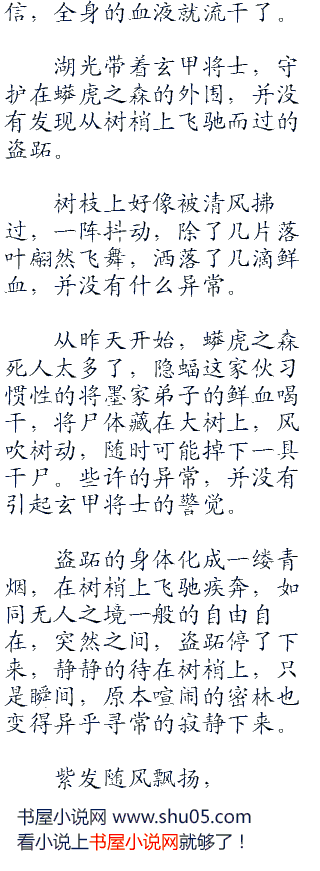 信，全身的血液就流干了。
湖光带着玄甲将士，守
护在蟒虎之森的外围，并没
有发现从树梢上飞驰而过的
盗跖。
树枝上好像被清风拂
过，一阵抖动，除了几片落
叶翩然飞舞，洒落了几滴鲜
血，并没有什么异常。
从昨天开始，蟒虎之森
死人太多了，隐蝠这家伙习
惯性的将墨家弟子的鲜血喝
干，将尸体藏在大树上，风
吹树动，随时可能掉下一具
干尸。些许的异常，并没有
引起玄甲将士的警觉。
盗跖的身体化成一缕青
烟，在树梢上飞驰疾奔，如
同无人之境一般的自由自
在，突然之间，盗跖停了下
来，静静的待在树梢上，只
是瞬间，原本喧闹的密林也
变得异乎寻常的寂静下来。
紫发随风飘扬，
书屋小说网 www.shu05.com
看小说上书屋小说网就够了！